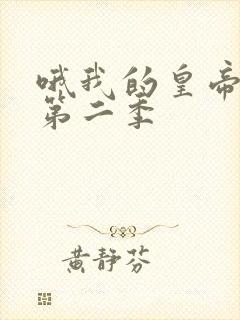 哦我的皇帝
第二季
黄静芬